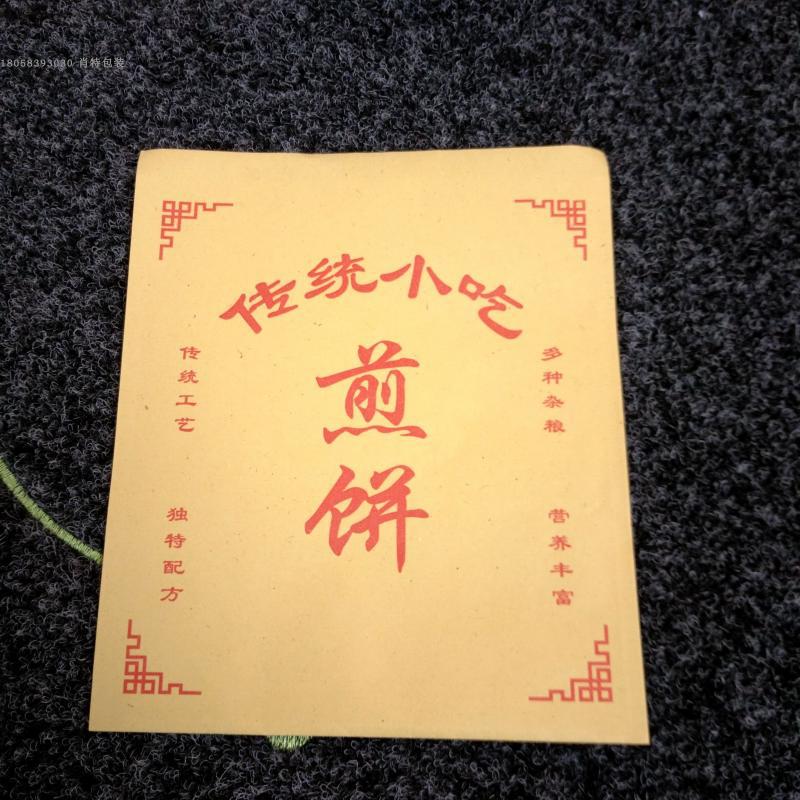 18058393030 肖特包装
传统小吃
煎饼
传统工艺
多种杂粮
独特配方
营养丰富